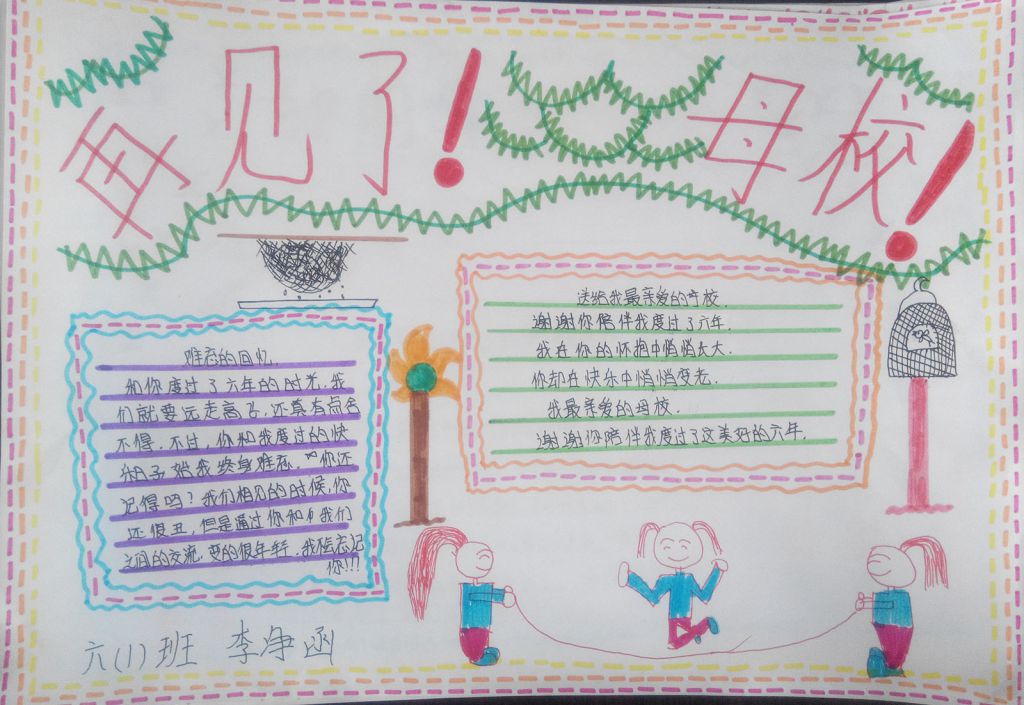 再见了！母校！
难忘的回忆
和你度过了六年的时光，我
们就要远走高飞，还真有点舍
不得，不过，你和我度过的快
乐日子始我终身难忘，"你还
记得吗？我们相见的时候，你
还很丑，但是通过你和我们
之间的交流，变的很年轻，我忘记
你!!!
送给我最亲爱的母校
谢谢你陪伴我度过了六年.
我在你的怀抱中悄悄长大.
你却在快乐中悄悄变老.
我最亲爱的母校.
谢谢你陪伴我度过了这美好的六年.
六(1)班 李净函